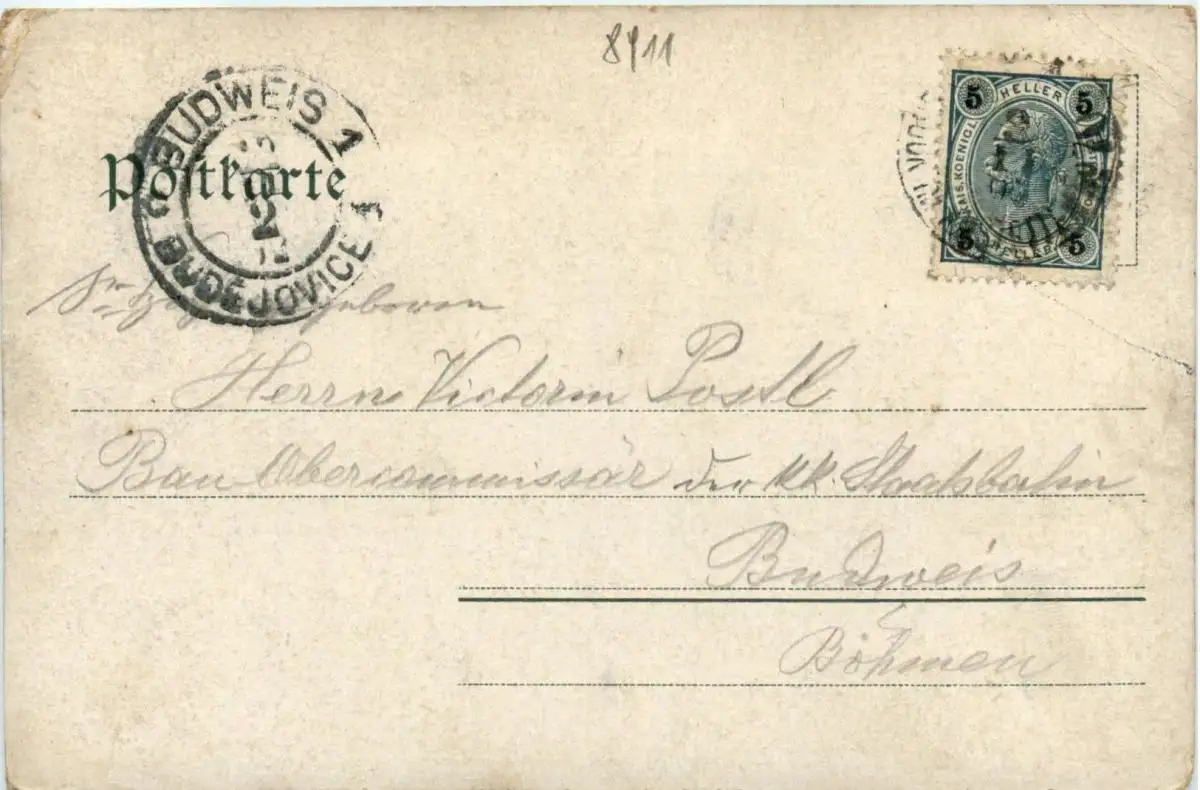 8911
BUDWEIS 1
BUDĚJOVICE 1
2
Postkarte
5 HELLER 5
KAIS. KOENIGL.
5 HELLER 5
Sr Hochgeboren
Herrn Victorin Postl
Bau Obercommissär der kk. Staatsbahn
Budweis
Böhmen